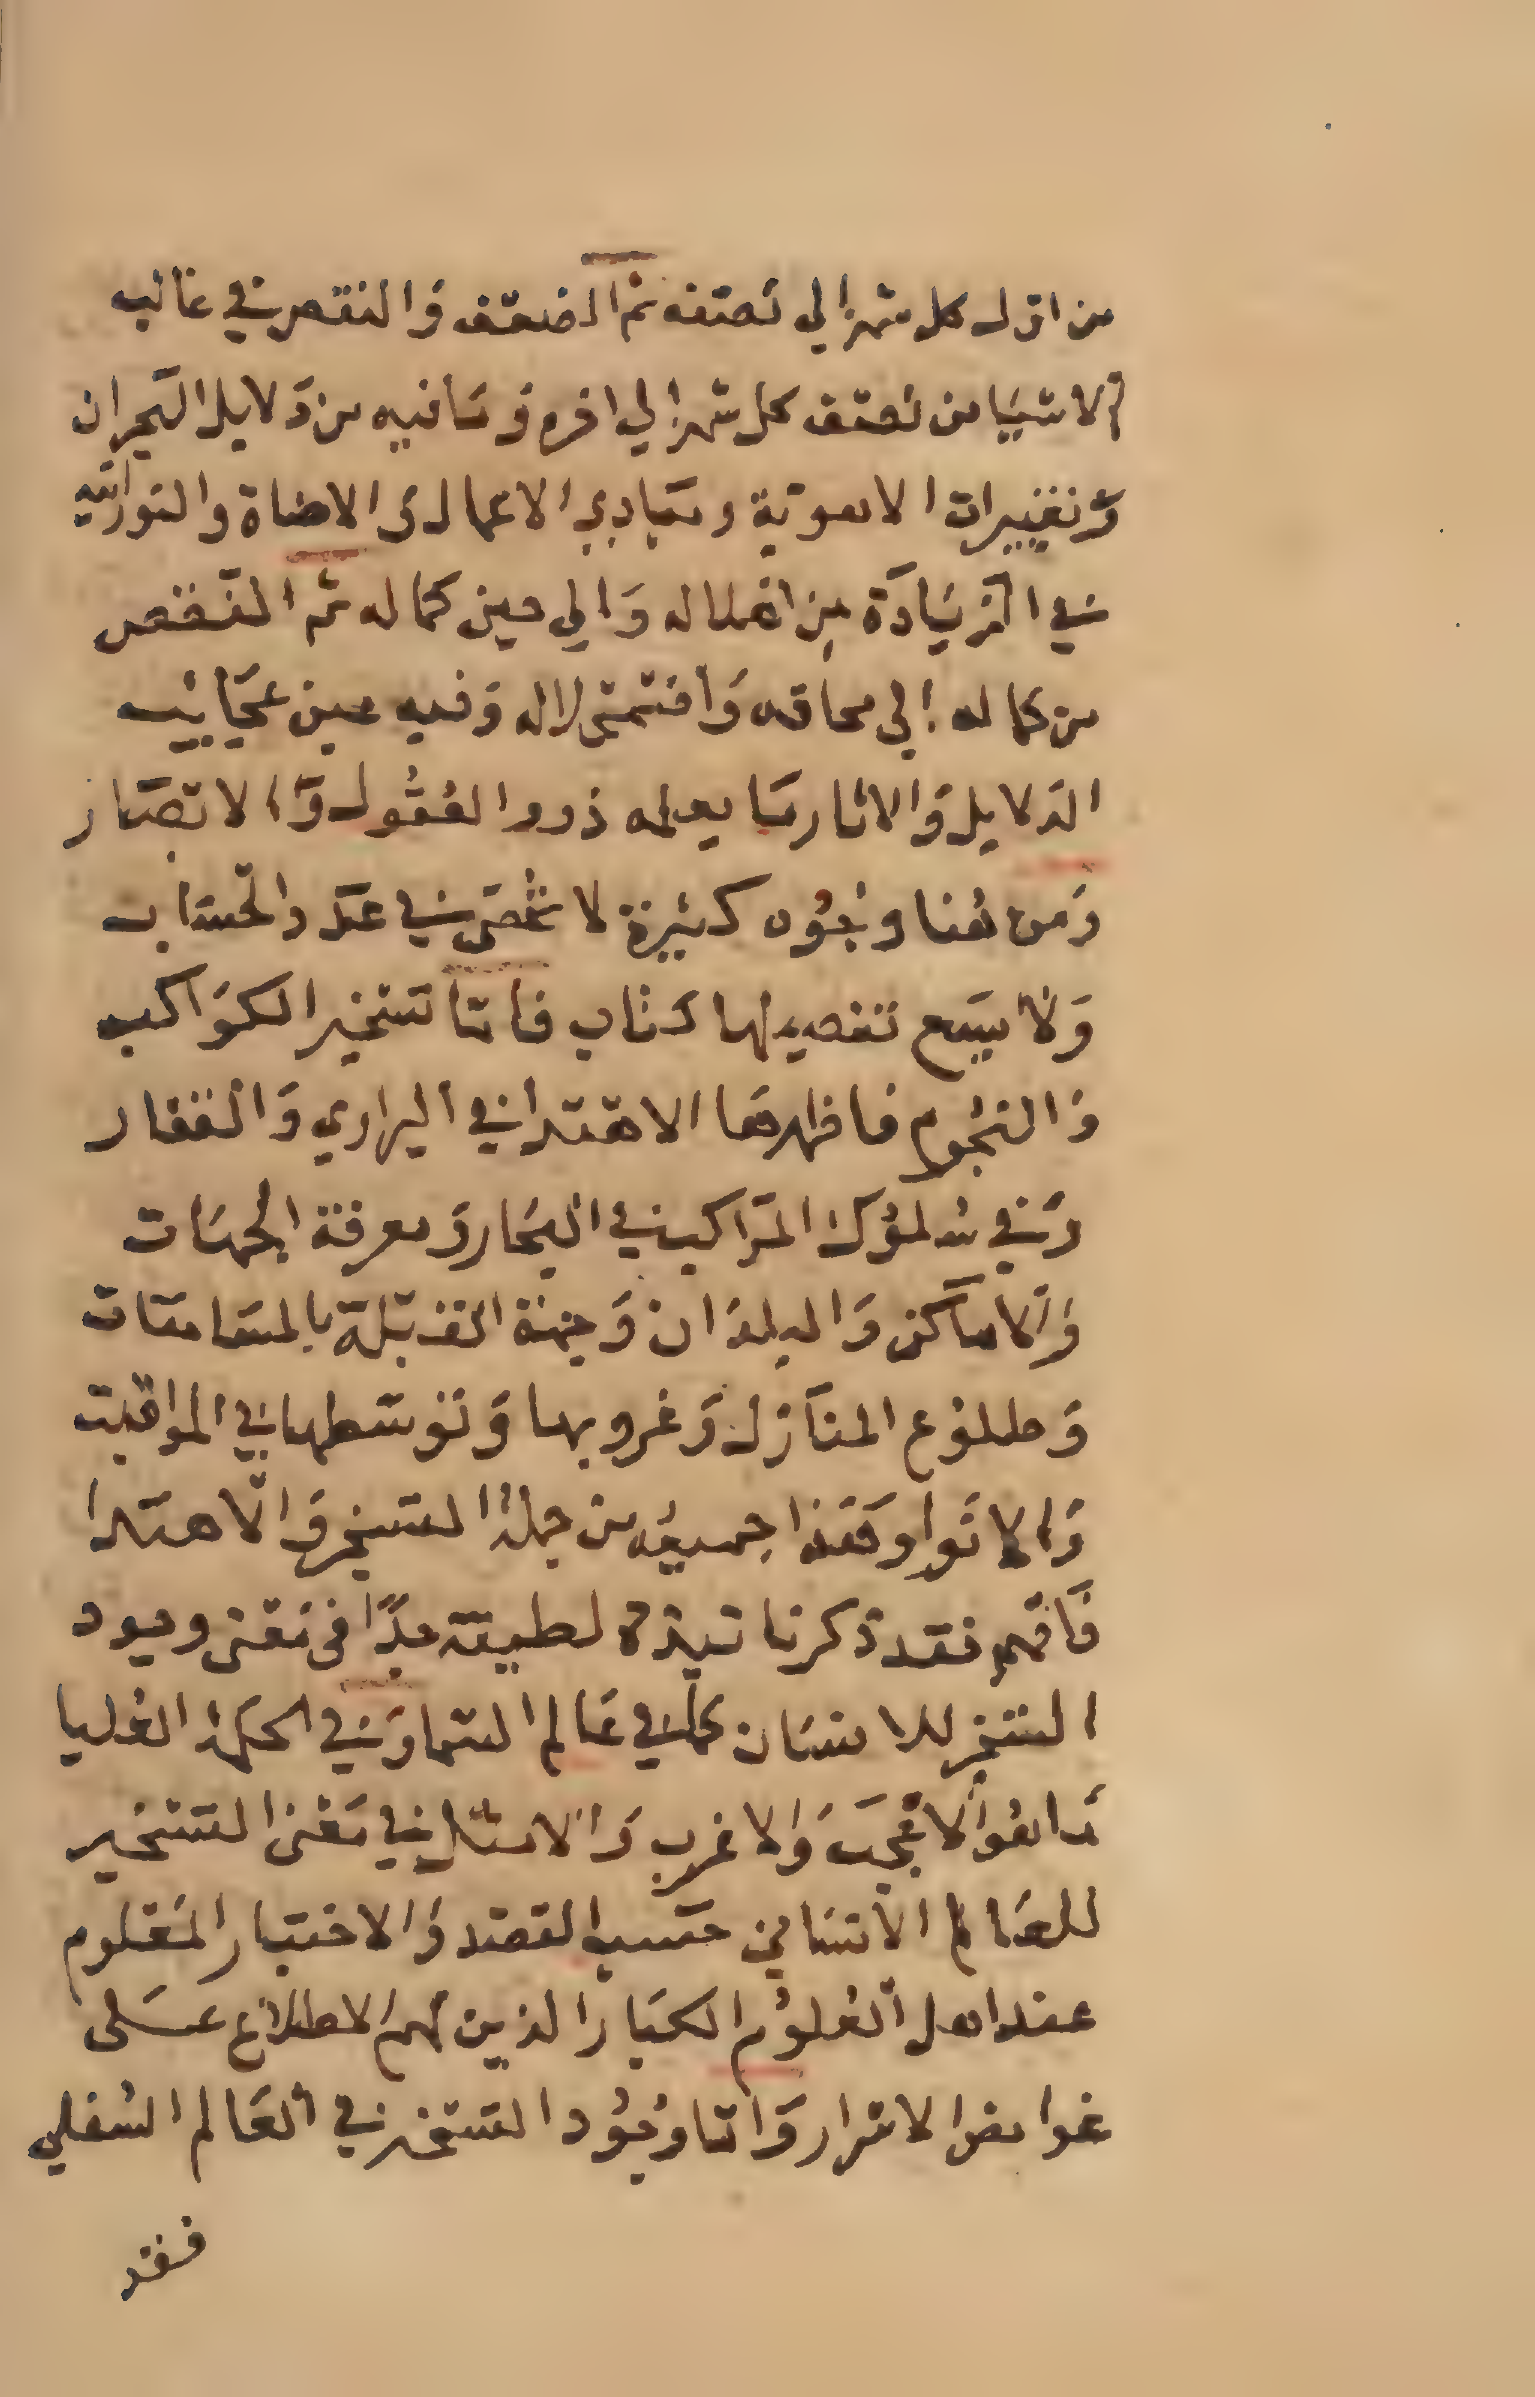 من اول كل شهر الي نصفه ثم الضعف والنقص في غالب
الاشيا من نصف كل شهر الي اخره وما فيه من دلايل البحران
وتغييرات الاهوية ومبادي الاعمال في الاضاة والنورانيه
في الزيادة من اهلاله والي حين كماله ثم النقص
من كماله الي محاقه واضمحلاله وفيه من عجايب
الدلايل والاثار ما يعلمه ذووا العقول والابصار
ومن هنا وجوه كثيرة لا تحصى في عد ولا حساب
ولا يسع تفصيلها كتاب فاما تسخير الكواكب
والنجوم فاظهرها الاهتدا في البراري والقفار
وفي سلوك المراكب في البحار ومعرفة الجهات
والاماكن والبلدان وجهة القبلة بالمسامتات
وطلوع المنازل وغروبها وتوسطها في المواقيت
والانوا وهذا جميعه من جملة التسخير والاهتدا
فافهم فقد ذكرنا نبذة لطيفة جدا في معنى وجود
التسخير للانسان كما في عالم السما وفي الحكمة العليا
ما هو الاعجب والاغرب والامثل في معنى التسخير
للعالم الانساني حسب القصد والاختبار المعلوم
عند اهل العلوم الكبار الذين لهم الاطلاع على
غوامض الاسرار واما وجود التسخير في العالم السفلي
فقد